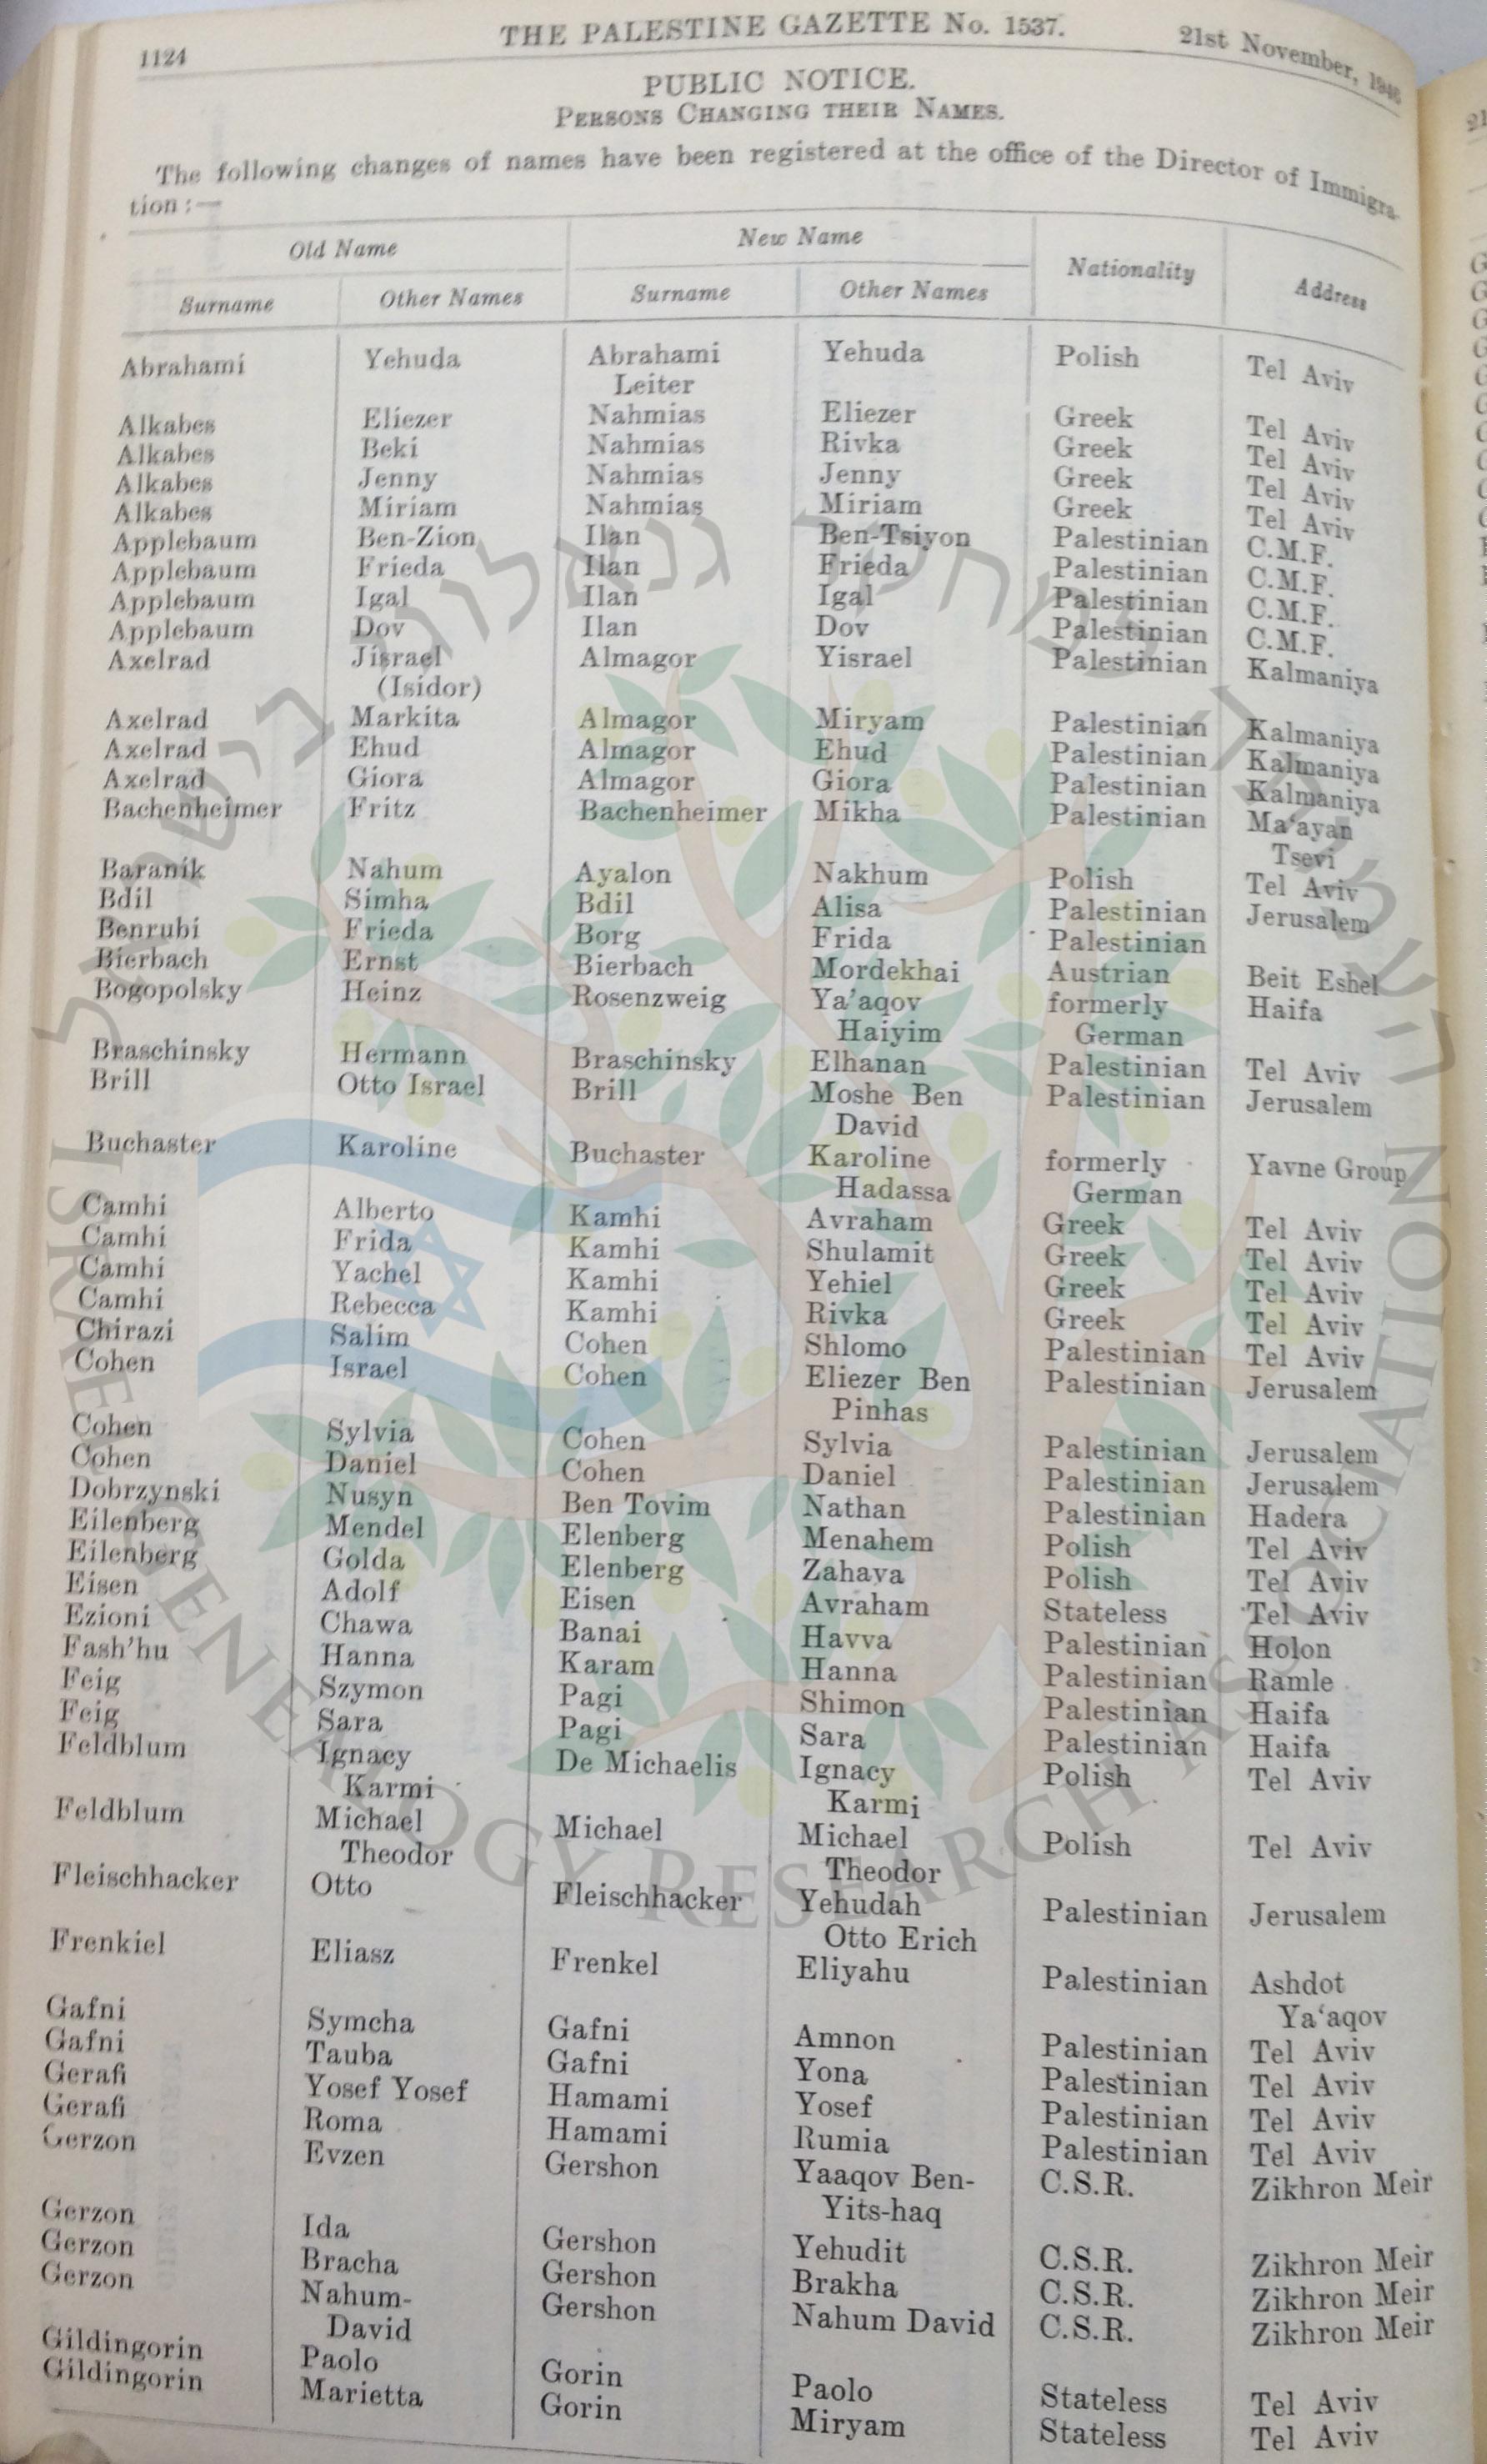 1124 THE PALESTINE GAZETTE No. 1537. 21st November, 1946
PUBLIC NOTICE.
PERSONS CHANGING THEIR NAMES.
The following changes of names have been registered at the office of the Director of Immigra-
tion :—
Old Name New Name Nationality Address
Surname Other Names Surname Other Names
Abrahami Yehuda Abrahami Yehuda Polish Tel Aviv
Leiter
Alkabes Eliezer Nahmias Eliezer Greek Tel Aviv
Alkabes Beki Nahmias Rivka Greek Tel Aviv
Alkabes Jenny Nahmias Jenny Greek Tel Aviv
Alkabes Miriam Nahmias Miriam Greek Tel Aviv
Applebaum Ben-Zion Ilan Ben-Tsiyon Palestinian C.M.F.
Applebaum Frieda Ilan Frieda Palestinian C.M.F.
Applebaum Igal Ilan Igal Palestinian C.M.F.
Applebaum Dov Ilan Dov Palestinian C.M.F.
Axelrad Jisrael Almagor Yisrael Palestinian Kalmaniya
(Isidor)
Axelrad Markita Almagor Miryam Palestinian Kalmaniya
Axelrad Ehud Almagor Ehud Palestinian Kalmaniya
Axelrad Giora Almagor Giora Palestinian Kalmaniya
Bachenheimer Fritz Bachenheimer Mikha Palestinian Ma'ayan
Tsevi
Baranik Nahum Ayalon Nakhum Polish Tel Aviv
Bdil Simha Bdil Alisa Palestinian Jerusalem
Benrubi Frieda Borg Frida Palestinian
Bierbach Ernst Bierbach Mordekhai Austrian Beit Eshel
Bogopolsky Heinz Rosenzweig Ya'aqov formerly Haifa
Haiyim German
Braschinsky Hermann Braschinsky Elhanan Palestinian Tel Aviv
Brill Otto Israel Brill Moshe Ben Palestinian Jerusalem
David
Buchaster Karoline Buchaster Karoline formerly Yavne Group
Hadassa German
Camhi Alberto Kamhi Avraham Greek Tel Aviv
Camhi Frida Kamhi Shulamit Greek Tel Aviv
Camhi Yachel Kamhi Yehiel Greek Tel Aviv
Camhi Rebecca Kamhi Rivka Greek Tel Aviv
Chirazi Salim Cohen Shlomo Palestinian Tel Aviv
Cohen Israel Cohen Eliezer Ben Palestinian Jerusalem
Pinhas
Cohen Sylvia Cohen Sylvia Palestinian Jerusalem
Cohen Daniel Cohen Daniel Palestinian Jerusalem
Dobrzynski Nusyn Ben Tovim Nathan Palestinian Hadera
Eilenberg Mendel Elenberg Menahem Polish Tel Aviv
Eilenberg Golda Elenberg Zahava Polish Tel Aviv
Eisen Adolf Eisen Avraham Stateless Tel Aviv
Ezioni Chawa Banai Havva Palestinian Holon
Fash'hu Hanna Karam Hanna Palestinian Ramle
Feig Szymon Pagi Shimon Palestinian Haifa
Feig Sara Pagi Sara Palestinian Haifa
Feldblum Ignacy De Michaelis Ignacy Polish Tel Aviv
Karmi Karmi
Feldblum Michael Michael Michael Polish Tel Aviv
Theodor Theodor
Fleischhacker Otto Fleischhacker Yehudah Palestinian Jerusalem
Otto Erich
Frenkiel Eliasz Frenkel Eliyahu Palestinian Ashdot
Ya'aqov
Gafni Symcha Gafni Amnon Palestinian Tel Aviv
Gafni Tauba Gafni Yona Palestinian Tel Aviv
Gerafi Yosef Yosef Hamami Yosef Palestinian Tel Aviv
Gerafi Roma Hamami Rumia Palestinian Tel Aviv
Gerzon Evzen Gershon Yaaqov Ben- C.S.R. Zikhron Meir
Yits-haq
Gerzon Ida Gershon Yehudit C.S.R. Zikhron Meir
Gerzon Bracha Gershon Brakha C.S.R. Zikhron Meir
Gerzon Nahum- Gershon Nahum David C.S.R. Zikhron Meir
David
Gildingorin Paolo Gorin Paolo Stateless Tel Aviv
Gildingorin Marietta Gorin Miryam Stateless Tel Aviv
ISRAEL GENEALOGY RESEARCH ASSOCIATION